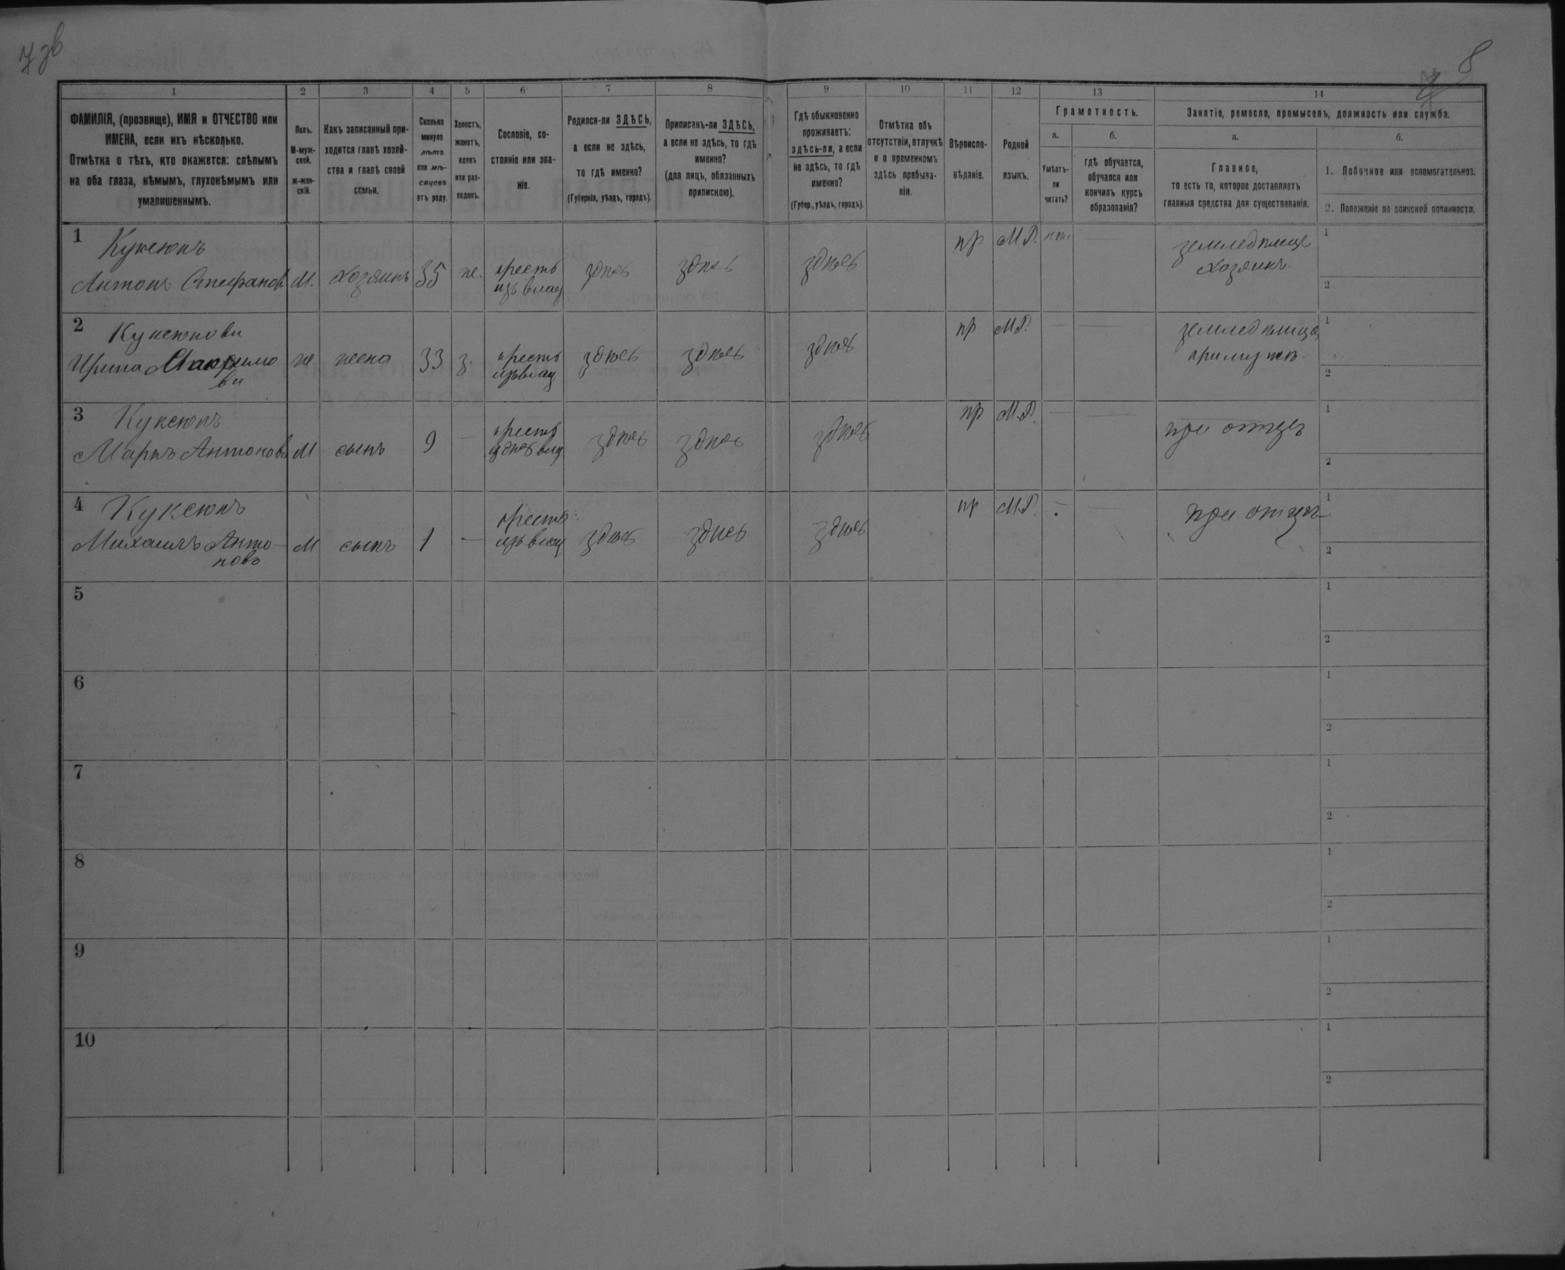 7 зв
8
1
2
3
4
5
6
7
8
9
10
11
12
13
14
ФАМИЛІЯ, (прозвище), ИМЯ и ОТЧЕСТВО или
ИМЕНА, если ихъ нѣсколько.
Отмѣтка о тѣхъ, кто окажется: слѣпымъ
на оба глаза, нѣмымъ, глухонѣмымъ или
умалишеннымъ.
Полъ.
М-муж-
ской.
ж-жен-
скій.
Какъ записанный при-
ходится главѣ хозяй-
ства и главѣ своей
семьи.
Сколько
минуло
лѣтъ
или мѣ-
сяцевъ
отъ роду.
Холостъ,
женатъ,
вдовъ
или раз-
веденъ.
Сословіе, со-
стояніе или зва-
ніе.
Родился-ли ЗДѢСЬ,
а если не здѣсь,
то гдѣ именно?
(Губернія, уѣздъ, городъ).
Приписанъ-ли ЗДѢСЬ,
а если не здѣсь, то гдѣ
именно?
(для лицъ, обязанныхъ
припискою).
Гдѣ обыкновенно
проживаетъ:
здѣсь-ли, а если
не здѣсь, то гдѣ
именно?
(Губер., уѣздъ, городъ).
Отмѣтка объ
отсутствіи, отлучкѣ
и о временномъ
здѣсь пребыва-
ніи.
Вѣроиспо-
вѣданіе.
Родной
языкъ.
Грамотность.
а.
б.
Умѣетъ-
ли
читать?
гдѣ обучается,
обучался или
кончилъ курсъ
образованія?
Занятіе, ремесло, промыселъ, должность или служба.
а.
б.
Главное,
то есть то, которое доставляетъ
главныя средства для существованія.
1. Побочное или вспомогательное.
2. Положеніе по воинской повинности.
1
Куксюпъ
Антонъ Стефанов М. хозяинъ 35 ж. крестъ здѣсь здѣсь здѣсь пр М.Р. нѣт
изъ влад
земледѣлецъ
хозяинъ
1
2
2 Куксюпова
Ирина ж жена 33 з. крестъ здѣсь здѣсь здѣсь пр М.Р.
изъ влад
1
2
3 Куксюпъ
Маркъ Антоновъ М сынъ 9 — крестъ здѣсь здѣсь здѣсь пр М.Р. —
при отцѣ
1
2
4 Куксюпъ
Михаилъ Анто-
новъ
М сынъ 1 — крестъ здѣсь здѣсь здѣсь пр М.Р. —
изъ влад
при отцѣ
1
2
5
1
2
6
1
2
7
1
2
8
1
2
9
1
2
10
1
2